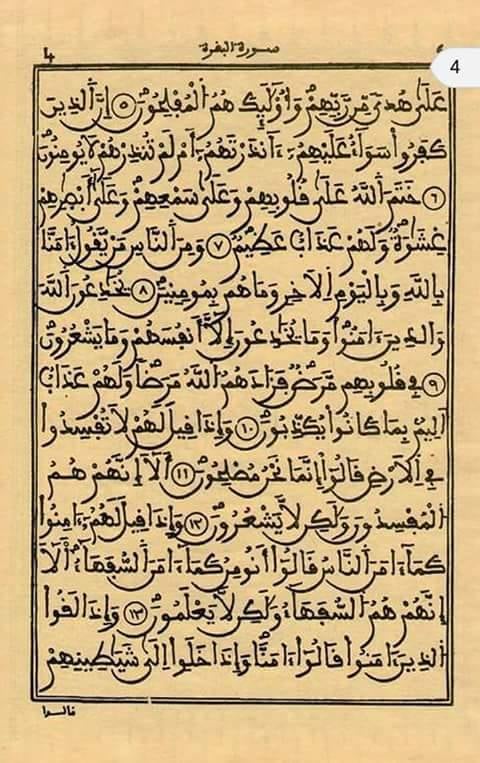 ٤ سورة البقرة 4
عَلَىٰ هُدىً مِّن رَّبِّهِمْ وَأُوْلَٰٓئِكَ هُمُ اُلْمُفْلِحُونَ ٥ إِنَّ اَلذِينَ
كَفَرُواْ سَوَآءٌ عَلَيْهِمُۥٓ ءَآنذَرْتَهُمُۥٓ أَمْ لَمْ تُنذِرْهُمْ لَا يُومِنُونَ
٦ خَتَمَ اَللَّهُ عَلَىٰ قُلُوبِهِمْ وَعَلَىٰ سَمْعِهِمْ وَعَلَىٰٓ أَبْصَٰرِهِمْ
غِشَٰوَةٌ وَلَهُمْ عَذَابٌ عَظِيمٌ ٧ وَمِنَ اَلنَّاسِ مَنْ يَّقُولُ ءَامَنَّا
بِاللَّهِ وَبِالْيَوْمِ اِلَاخِرِ وَمَا هُم بِمُومِنِينَ ٨ يُخَٰدِعُونَ اَللَّهَ
وَالذِينَ ءَامَنُواْ وَمَا يُخَٰدِعُونَ إِلَّآ أَنفُسَهُمْ وَمَا يَشْعُرُونَ
٩ فِي قُلُوبِهِم مَّرَضٌ فَزَادَهُمُ اُللَّهُ مَرَضاً وَلَهُمْ عَذَابٌ
اَلِيمٌ بِمَا كَانُواْ يُكَذِّبُونَ ١٠ وَإِذَا قِيلَ لَهُمْ لَا تُفْسِدُواْ
فِي اِلَارْضِ قَالُوٓاْ إِنَّمَا نَحْنُ مُصْلِحُونَ ١١ أَلَآ إِنَّهُمْ هُمُ
اُلْمُفْسِدُونَ وَلَٰكِن لَّا يَشْعُرُونَ ١٢ وَإِذَا قِيلَ لَهُمُۥٓ ءَامِنُواْ
كَمَآ ءَامَنَ اَلنَّاسُ قَالُوٓاْ أَنُومِنُ كَمَآ ءَامَنَ اَلسُّفَهَآءُ اَلَآ
إِنَّهُمْ هُمُ اُلسُّفَهَآءُ وَلَٰكِن لَّا يَعْلَمُونَ ١٣ وَإِذَا لَقُواْ
اُلذِينَ ءَامَنُواْ قَالُوٓاْ ءَامَنَّا وَإِذَا خَلَوِاْ اِلَىٰ شَيَٰطِينِهِمْ
قالوا